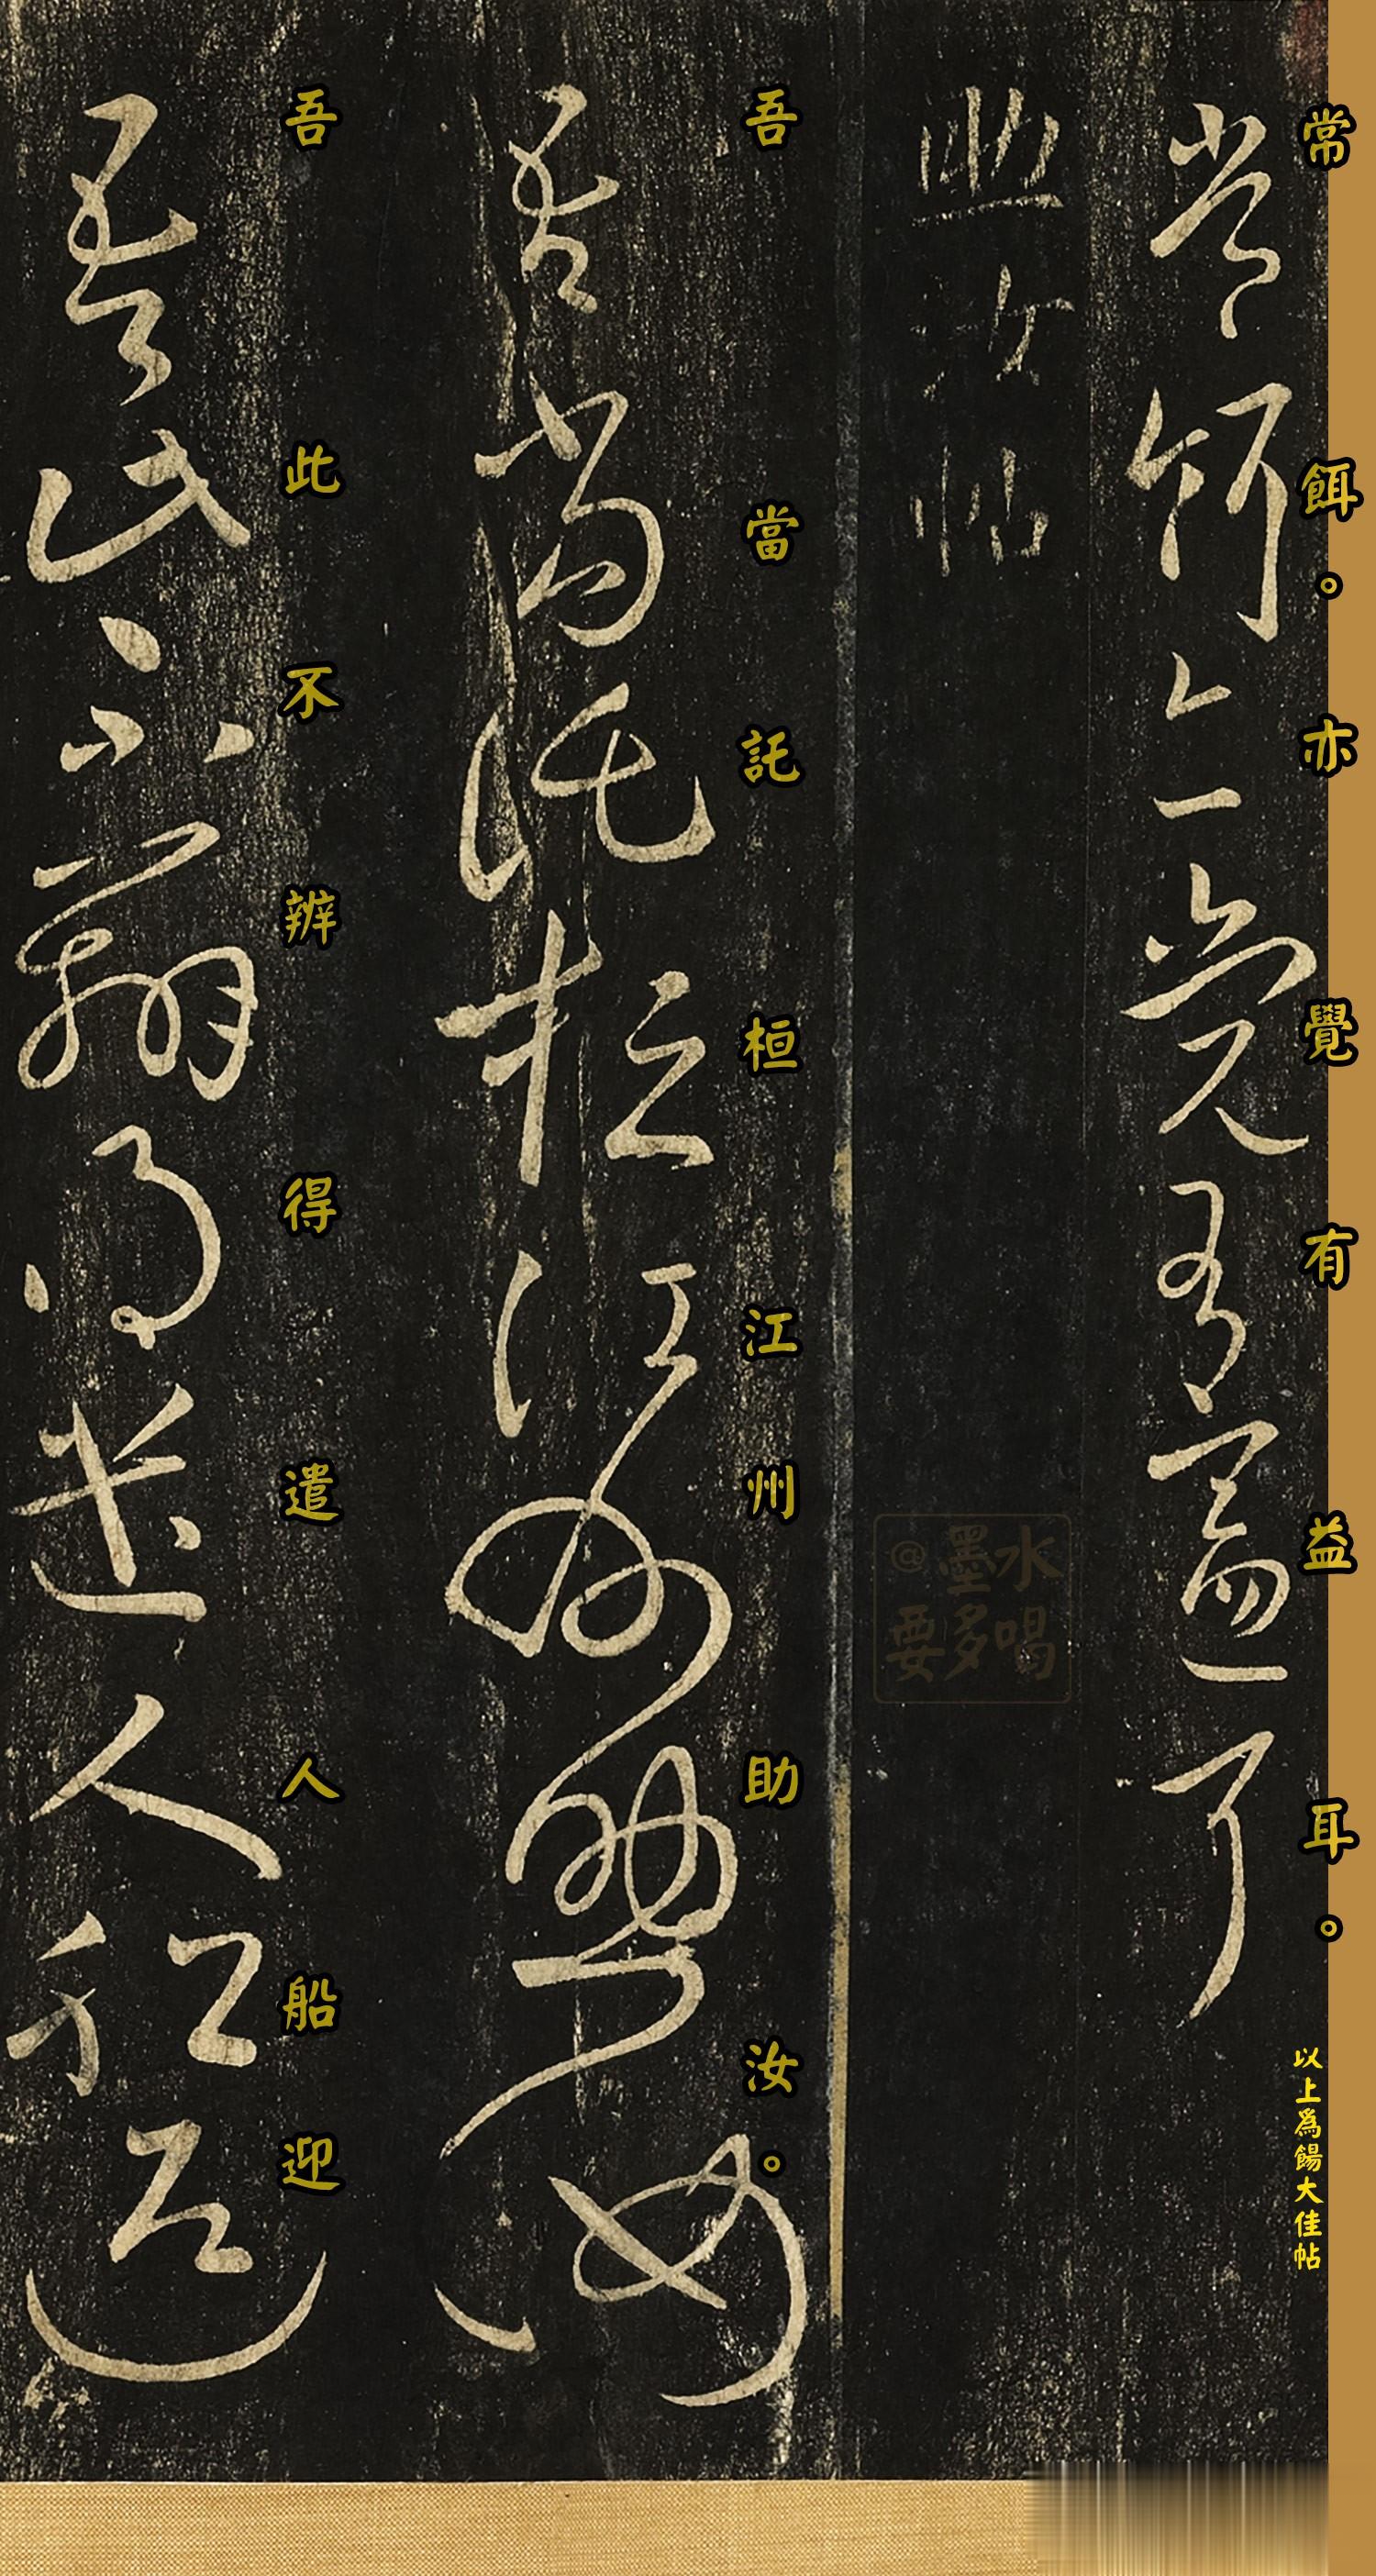 常餌。亦覺有益耳。
以上為餳大佳帖
@墨水
要多喝
吾當託桓江州助汝。
吾此不辨得遣人船迎